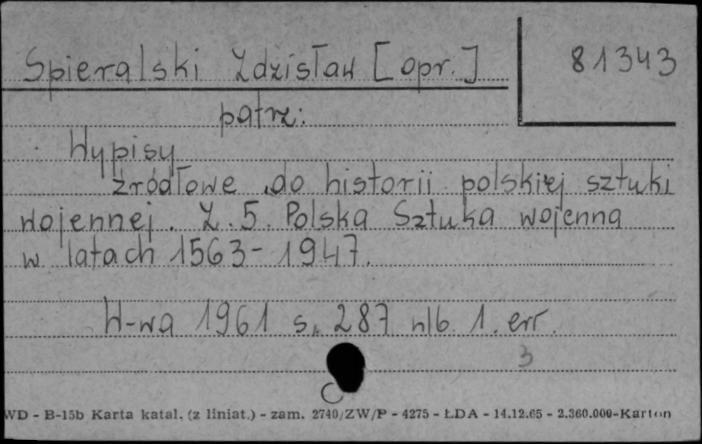 Spieralski Zdzisław [opr.] 81343
patrz:
Wypisy
źródłowe do historii polskiej sztuki
wojennej. Z. 5. Polska Sztuka wojenna
w latach 1563-1947.
W-wa 1961 s. 287 nlb 1. err.
3
WD - B-15b Karta katal. (z liniat.) - zam. 2740/ZW/P - 4275 - ŁDA - 14.12.65 - 2.360.000-Karton